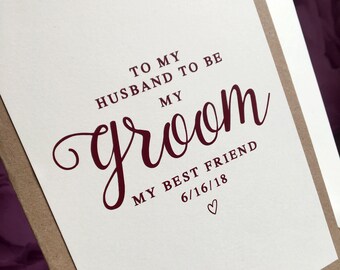 TO MY
HUSBAND TO BE
MY
groom
MY BEST FRIEND
6/16/18